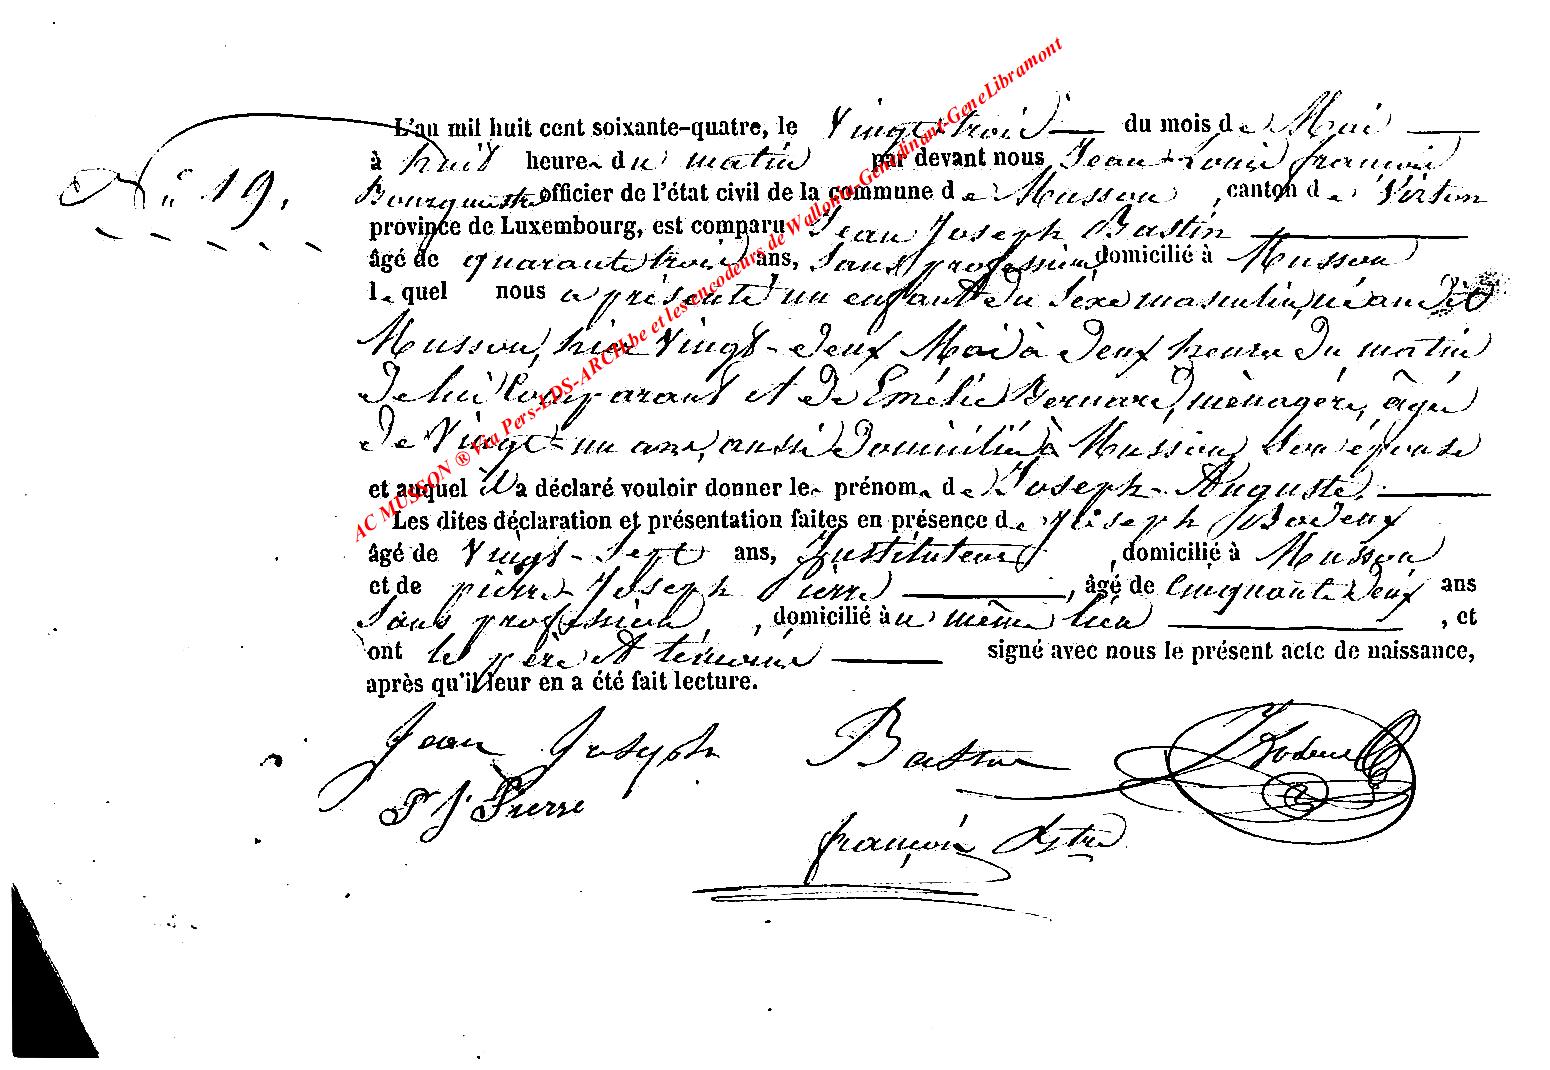 N° 19.
L'an mil huit cent soixante-quatre, le Vingt-trois du mois de Mai
à huit heure du matin par devant nous Jean-Louis françois
Bourguet officier de l'état civil de la commune de Musson, canton de Virton
province de Luxembourg, est comparu Jean Joseph Bastin
âgé de quarante trois ans, Sans profession, domicilié à Musson
lequel nous a présenté un enfant du sexe masculin, né audit
Musson, hier Vingt-deux Mai à deux heures du matin
de lui Comparant et de Emélie Bernard, ménagère, âgée
de Vingt-un ans, aussi domiciliée à Musson son épouse
et auquel il a déclaré vouloir donner le prénom de Joseph-Auguste.
Les dites déclaration et présentation faites en présence de Joseph Bodeux
âgé de Vingt-Sept ans, Instituteur, domicilié à Musson
et de pierre Joseph Pierre, âgé de Cinquante deux ans
Sans profession, domicilié à u même lieu, et
ont le père et témoins signé avec nous le présent acte de naissance,
après qu'il leur en a été fait lecture.
Jean Joseph Bastin
J Bodeux
P J Pierre
françois
AC MUSSON ® Via Pers-LDS-ARCH.be et les encodeurs de Wallonia-Gendinant-GeneLibramont